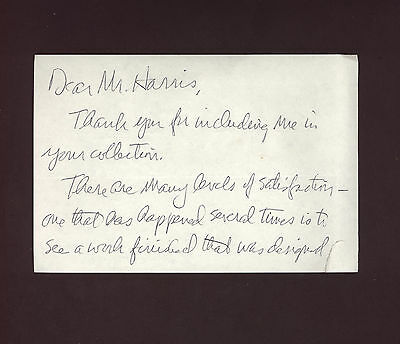 Dear Mr. Harris,
Thank you for including me in
your collection.
There are many levels of satisfaction –
one that has happened several times is to
see a work finished that was designed